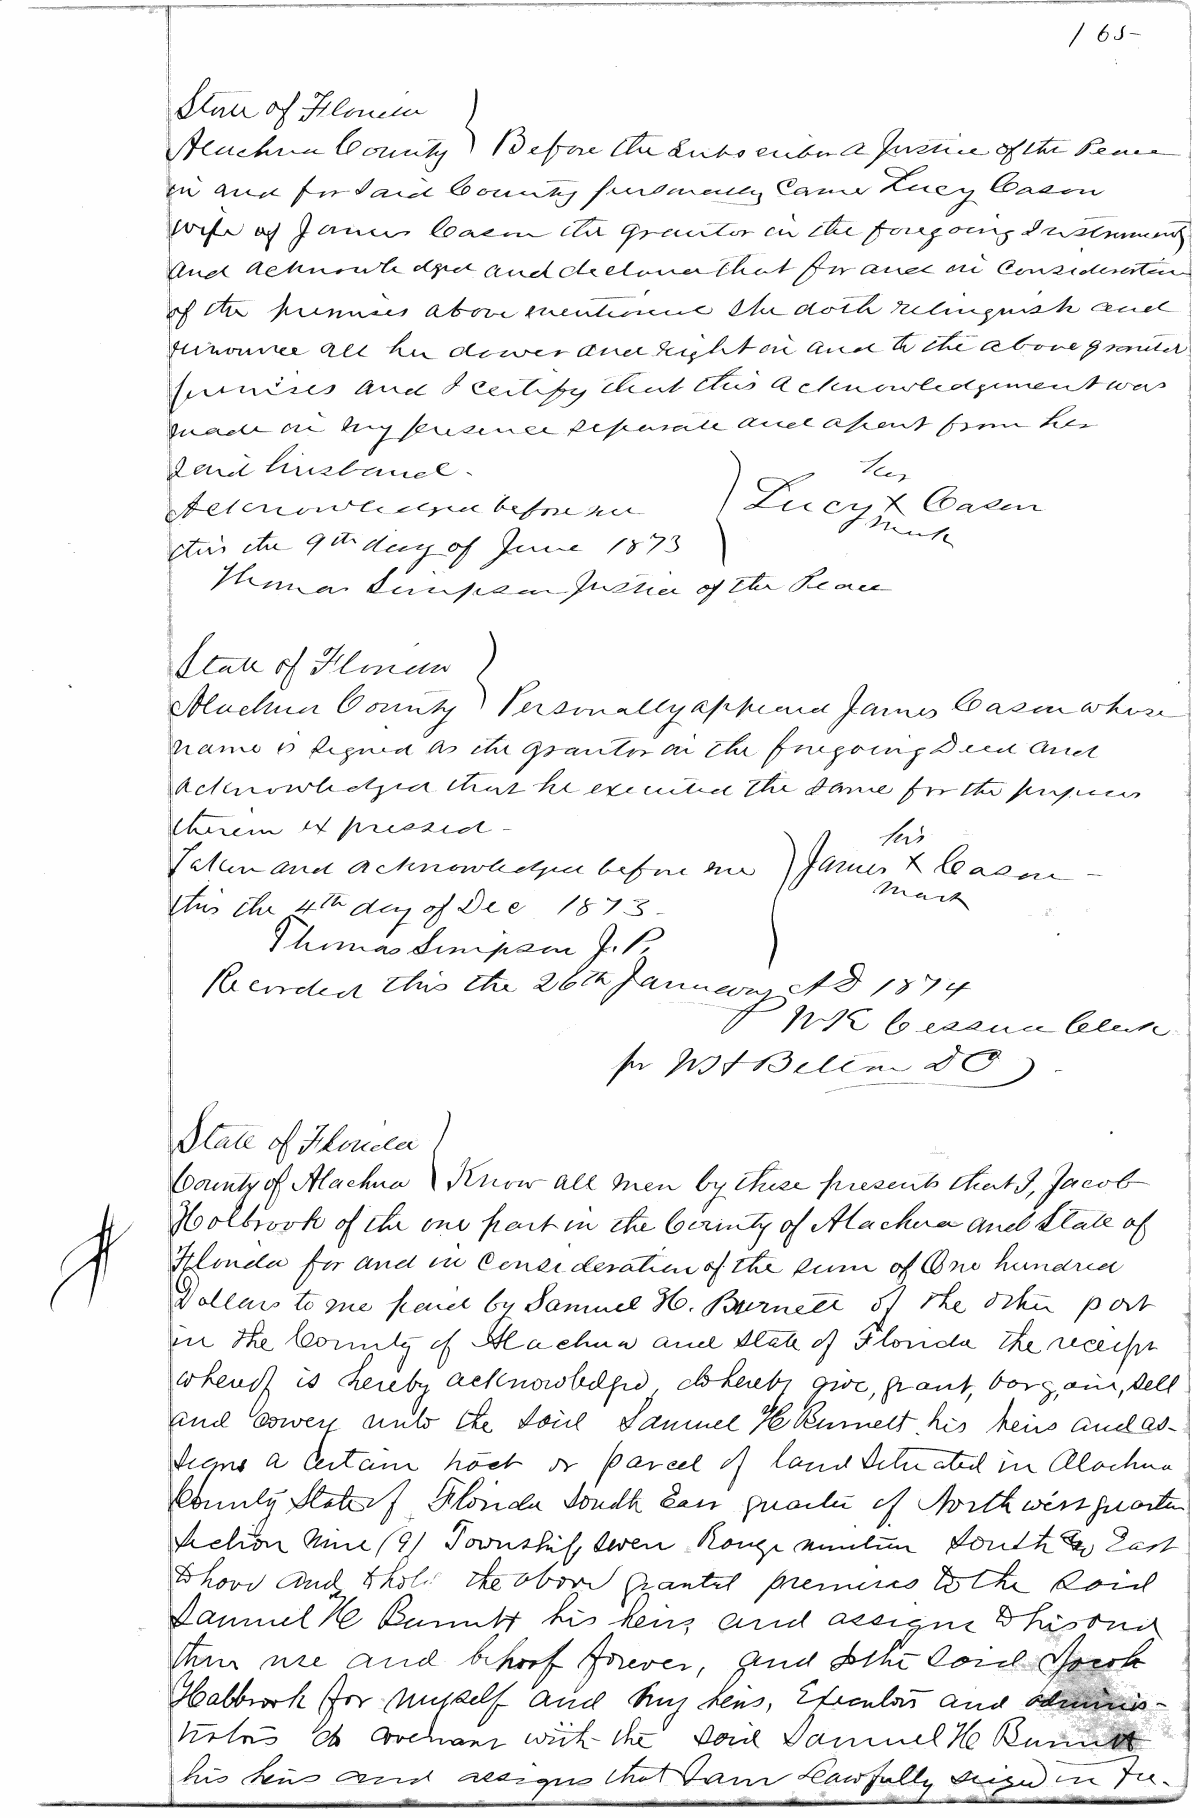 165-
State of Florida
Alachua County } Before the Subscriber a Justice of the Peace
in and for Said County personally Came Lucy Cason
wife of James Cason the grantor in the foregoing Instrument
and acknowledged and declared that for and in Consideration
of the premises above mentioned She doth relinquish and
renounce all her dower and right in and to the above granted
premises and I certify that this Acknowledgement was
made in my presence separate and apart from her
Said husband.
Acknowledged before me
this the 9th day of June 1873
her
Lucy X Cason
mark
Thomas Simpson Justice of the Peace
State of Florida
Alachua County } Personally appeared James Cason whose
name is signed as the grantor in the foregoing Deed and
acknowledged that he executed the Same for the purposes
therein expressed -
Taken and acknowledged before me
this the 4th day of Dec 1873 -
his
James X Cason -
mark
Thomas Simpson J. P.
Recorded this the 26th January AD 1874
Cessna Clerk
pr Belton DC
State of Florida
County of Alachua } Know all men by these presents that I, Jacob
Holbrook of the one part in the County of Alachua and State of
Florida for and in Consideration of the sum of One hundred
Dollars to me paid by Samuel H. Burnett of the other part
in the County of Alachua and State of Florida the receipt
whereof is hereby acknowledged, do hereby give, grant, bargain, sell
and convey unto the Said Samuel H Burnett his heirs and as-
signs a certain tract or parcel of land situated in Alachua
County State of Florida South East quarter of North west quarter
Section Nine (9) Township seven Range nineteen South & East
To have and to hold the above granted premises to the Said
Samuel H Burnett his heirs and assigns to his and
their use and behoof forever, and I the Said Jacob
Halbrook for myself and my heirs, Executors and adminis-
trators do covenant with the Said Samuel H Burnett
his heirs and assigns that I am Lawfully seized in Fee-